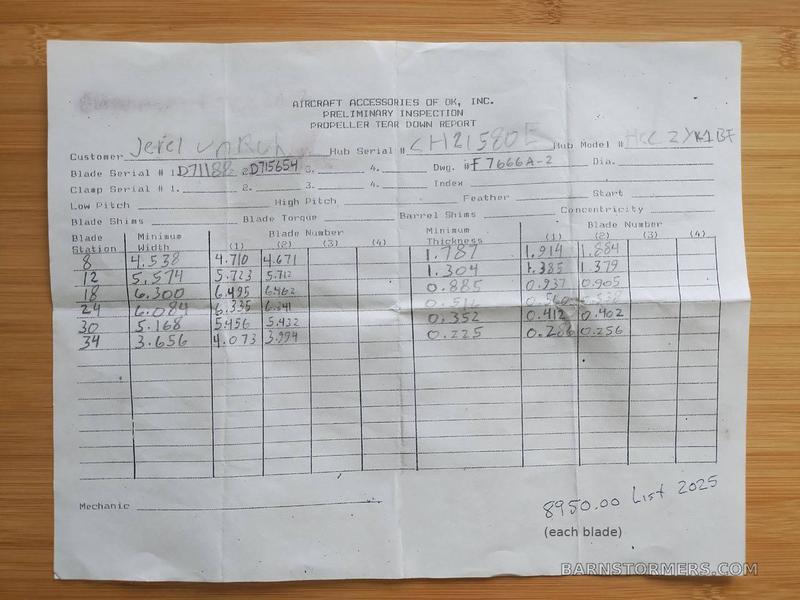 AIRCRAFT ACCESSORIES OF OK, INC.
PRELIMINARY INSPECTION
PROPELLER TEAR DOWN REPORT
Customer Jerel Hub Serial # CH21580E Hub Model # HCC2YK1BF
Blade Serial # 1. D71188 2. D715654 3. 4. Dwg. # F7666A-2 Dia.
Clamp Serial # 1. 2. 3. 4. Index Start
Low Pitch High Pitch Feather Concentricity
Blade Shims Blade Torque Barrel Shims
Blade Station Minimum Width Blade Number (1) (2) (3) (4) Minimum Thickness Blade Number (1) (2) (3) (4)
8 4.538 4.710 4.671 1.787 1.914 1.884
12 5.574 5.723 5.712 1.304 1.385 1.379
18 6.300 6.495 6.462 0.885 0.937 0.905
24 6.084 6.335 6.341 0.516 0.560 0.538
30 5.168 5.456 5.432 0.352 0.412 0.402
34 3.656 4.073 3.994 0.225 0.286 0.256
Mechanic
8950.00 List 2025
(each blade)
BARNSTORMERS.COM